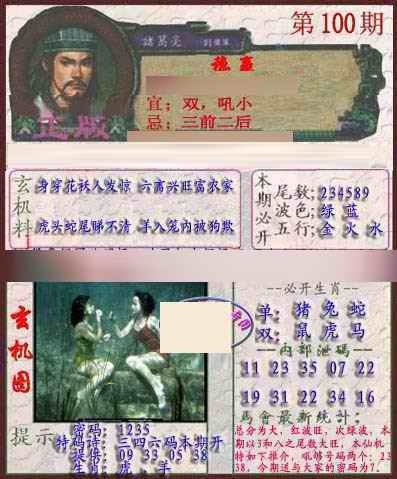 第100期
諸葛亮
穩 赢
宜；双，吼小
忌；三前二后
正版
玄机料
身穿花袄人发惊 六畜兴旺富农家
虎头蛇尾睇不清 羊入笼内被狗欺
本期必开
尾数;234589
波色;绿 蓝
五行;金 火 水
玄机图
必开生肖
单: 猪 兔 蛇
双: 鼠 虎 马
内部泄码
11 23 35 07 22
19 31 22 34 16
馬會最新統计:
总分为大，红波旺，次绿波，本
期以3和八之尾数大旺，本仙机
特如下推介，吼够号码两个：2
38，今期送与大家的密码为7。
提示
密码: 1235
特码诗: 三四六码本期开
提供: 09 33 05 38
生肖: 虎、羊